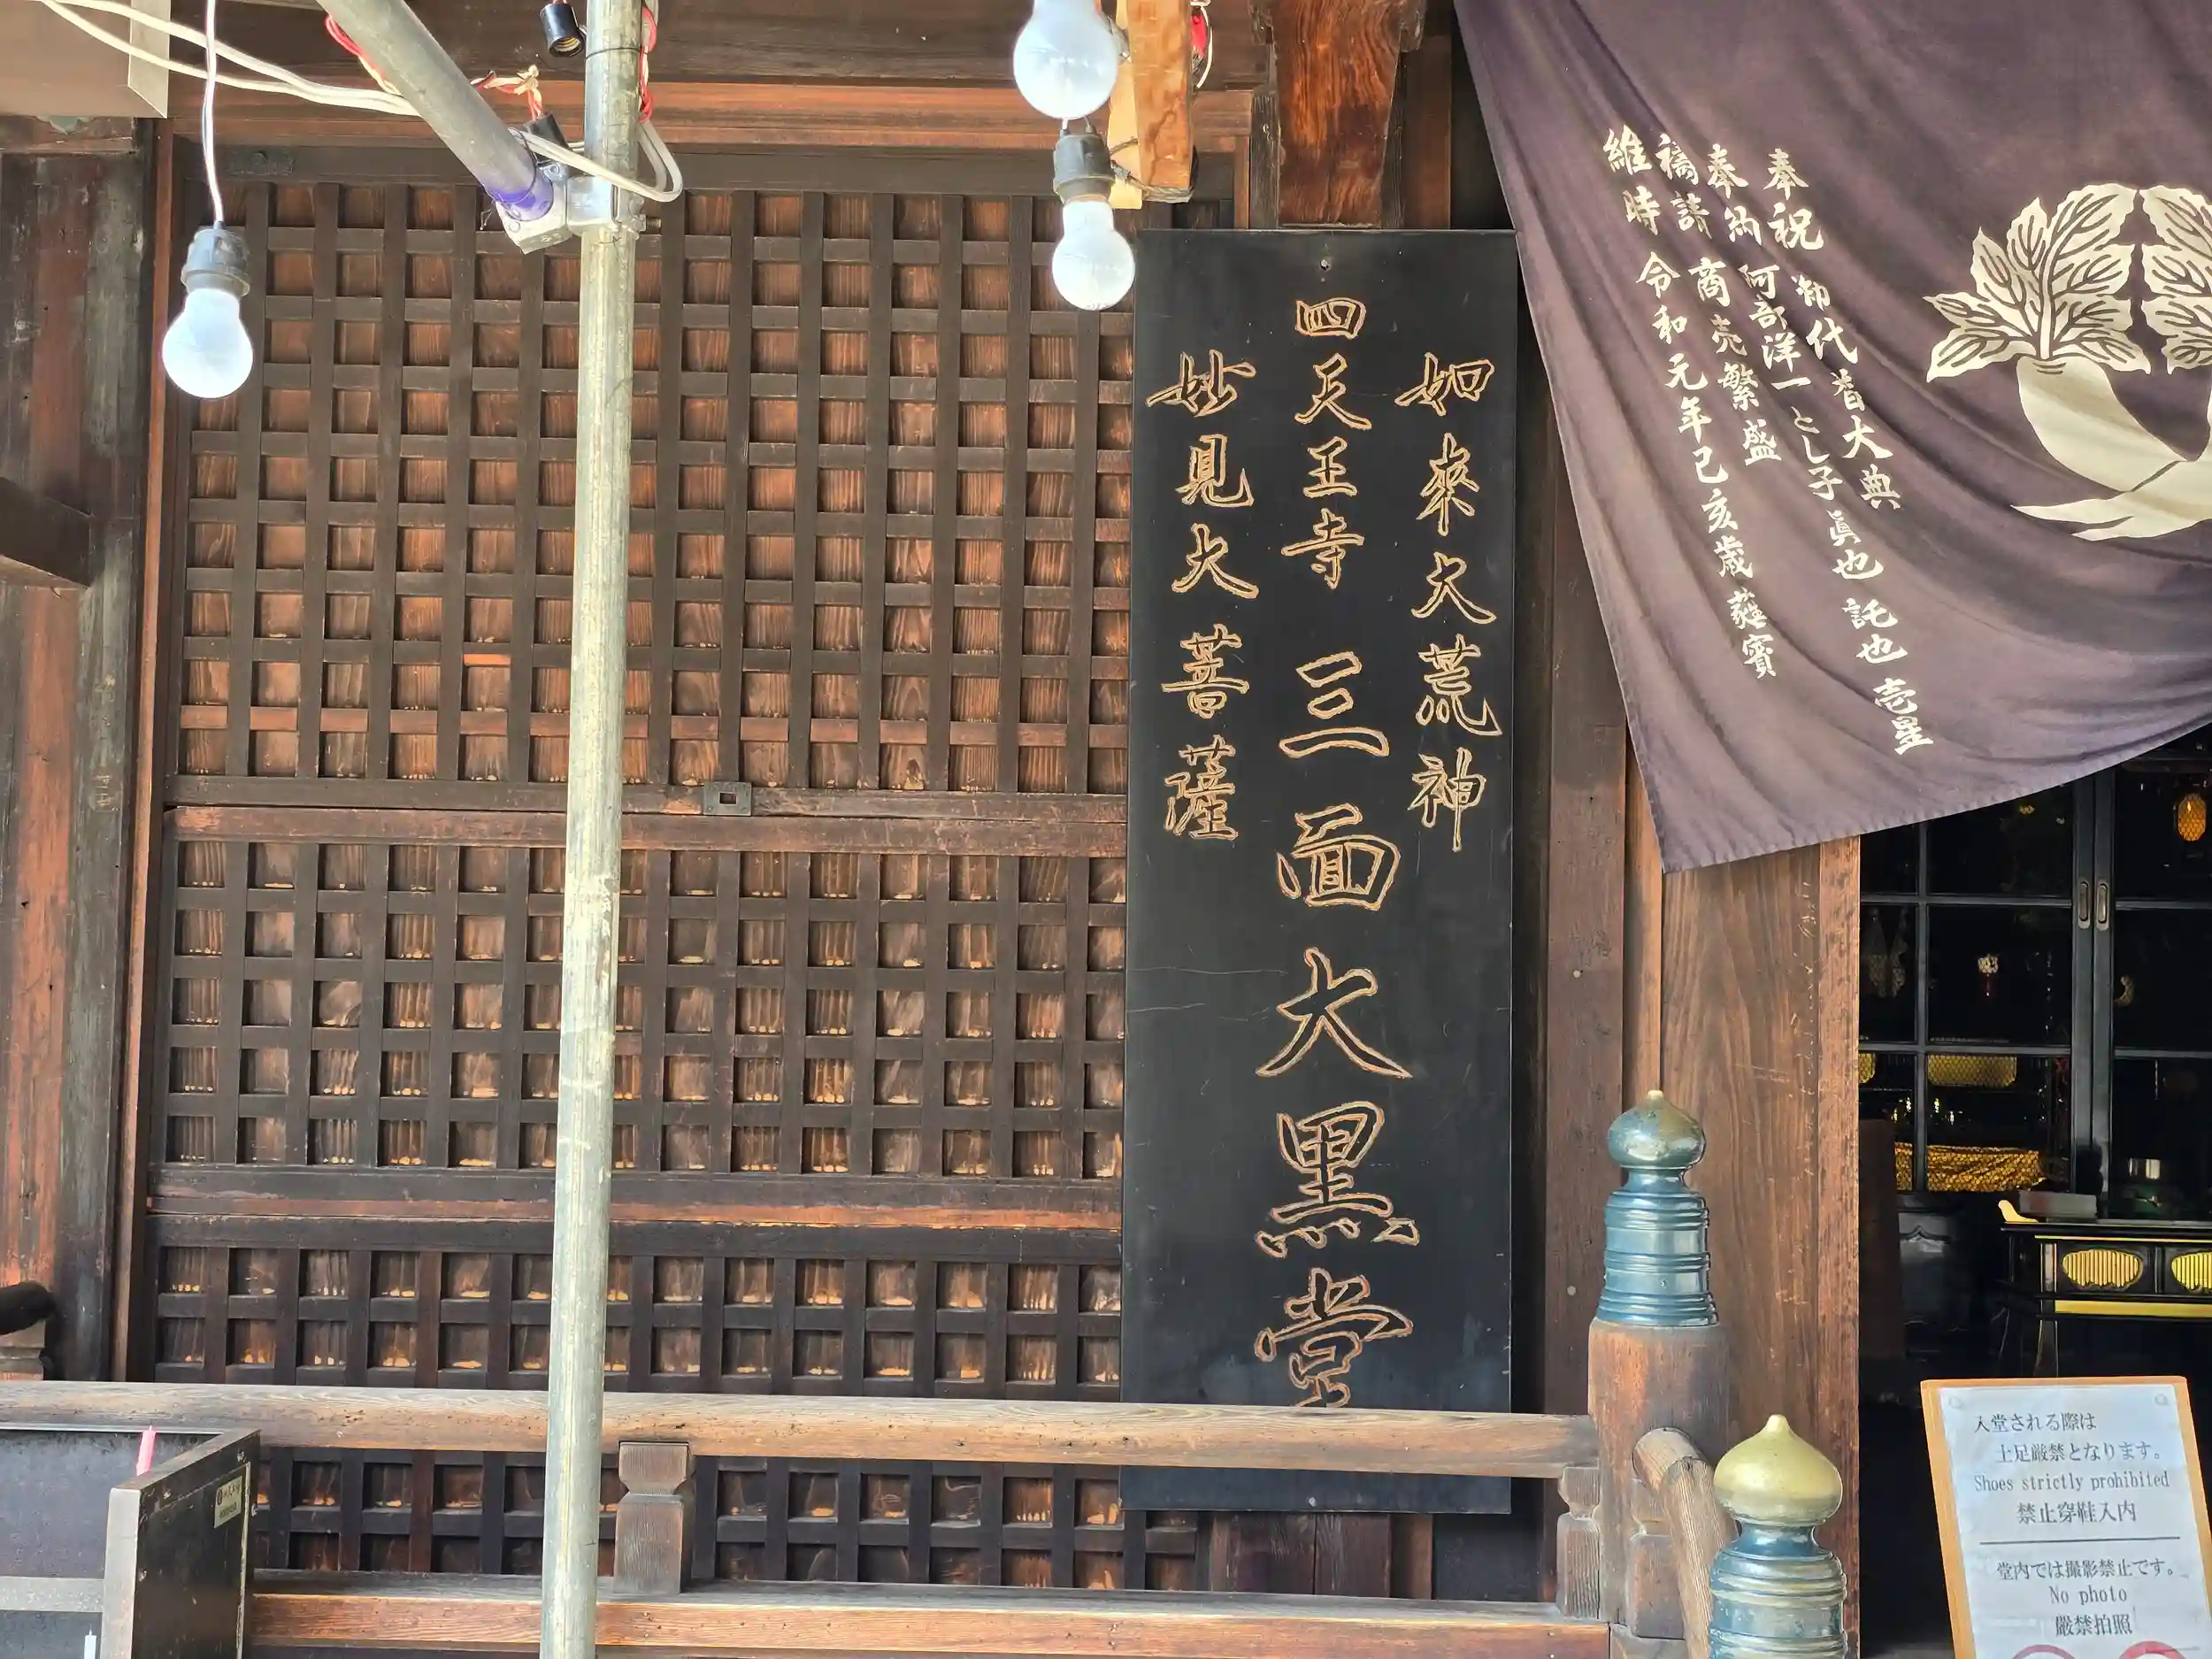 如來大荒神
四天王寺 三面大黒堂
妙見大菩薩
奉祝 御代替大典
奉納 阿部洋一 とし子 眞也 託也 壱星
祷請 商売繁盛
維時 令和元年己亥歳 蕤賓
入堂される際は
土足厳禁となります。
Shoes strictly prohibited
禁止穿鞋入内
堂内では撮影禁止です。
No photo
嚴禁拍照